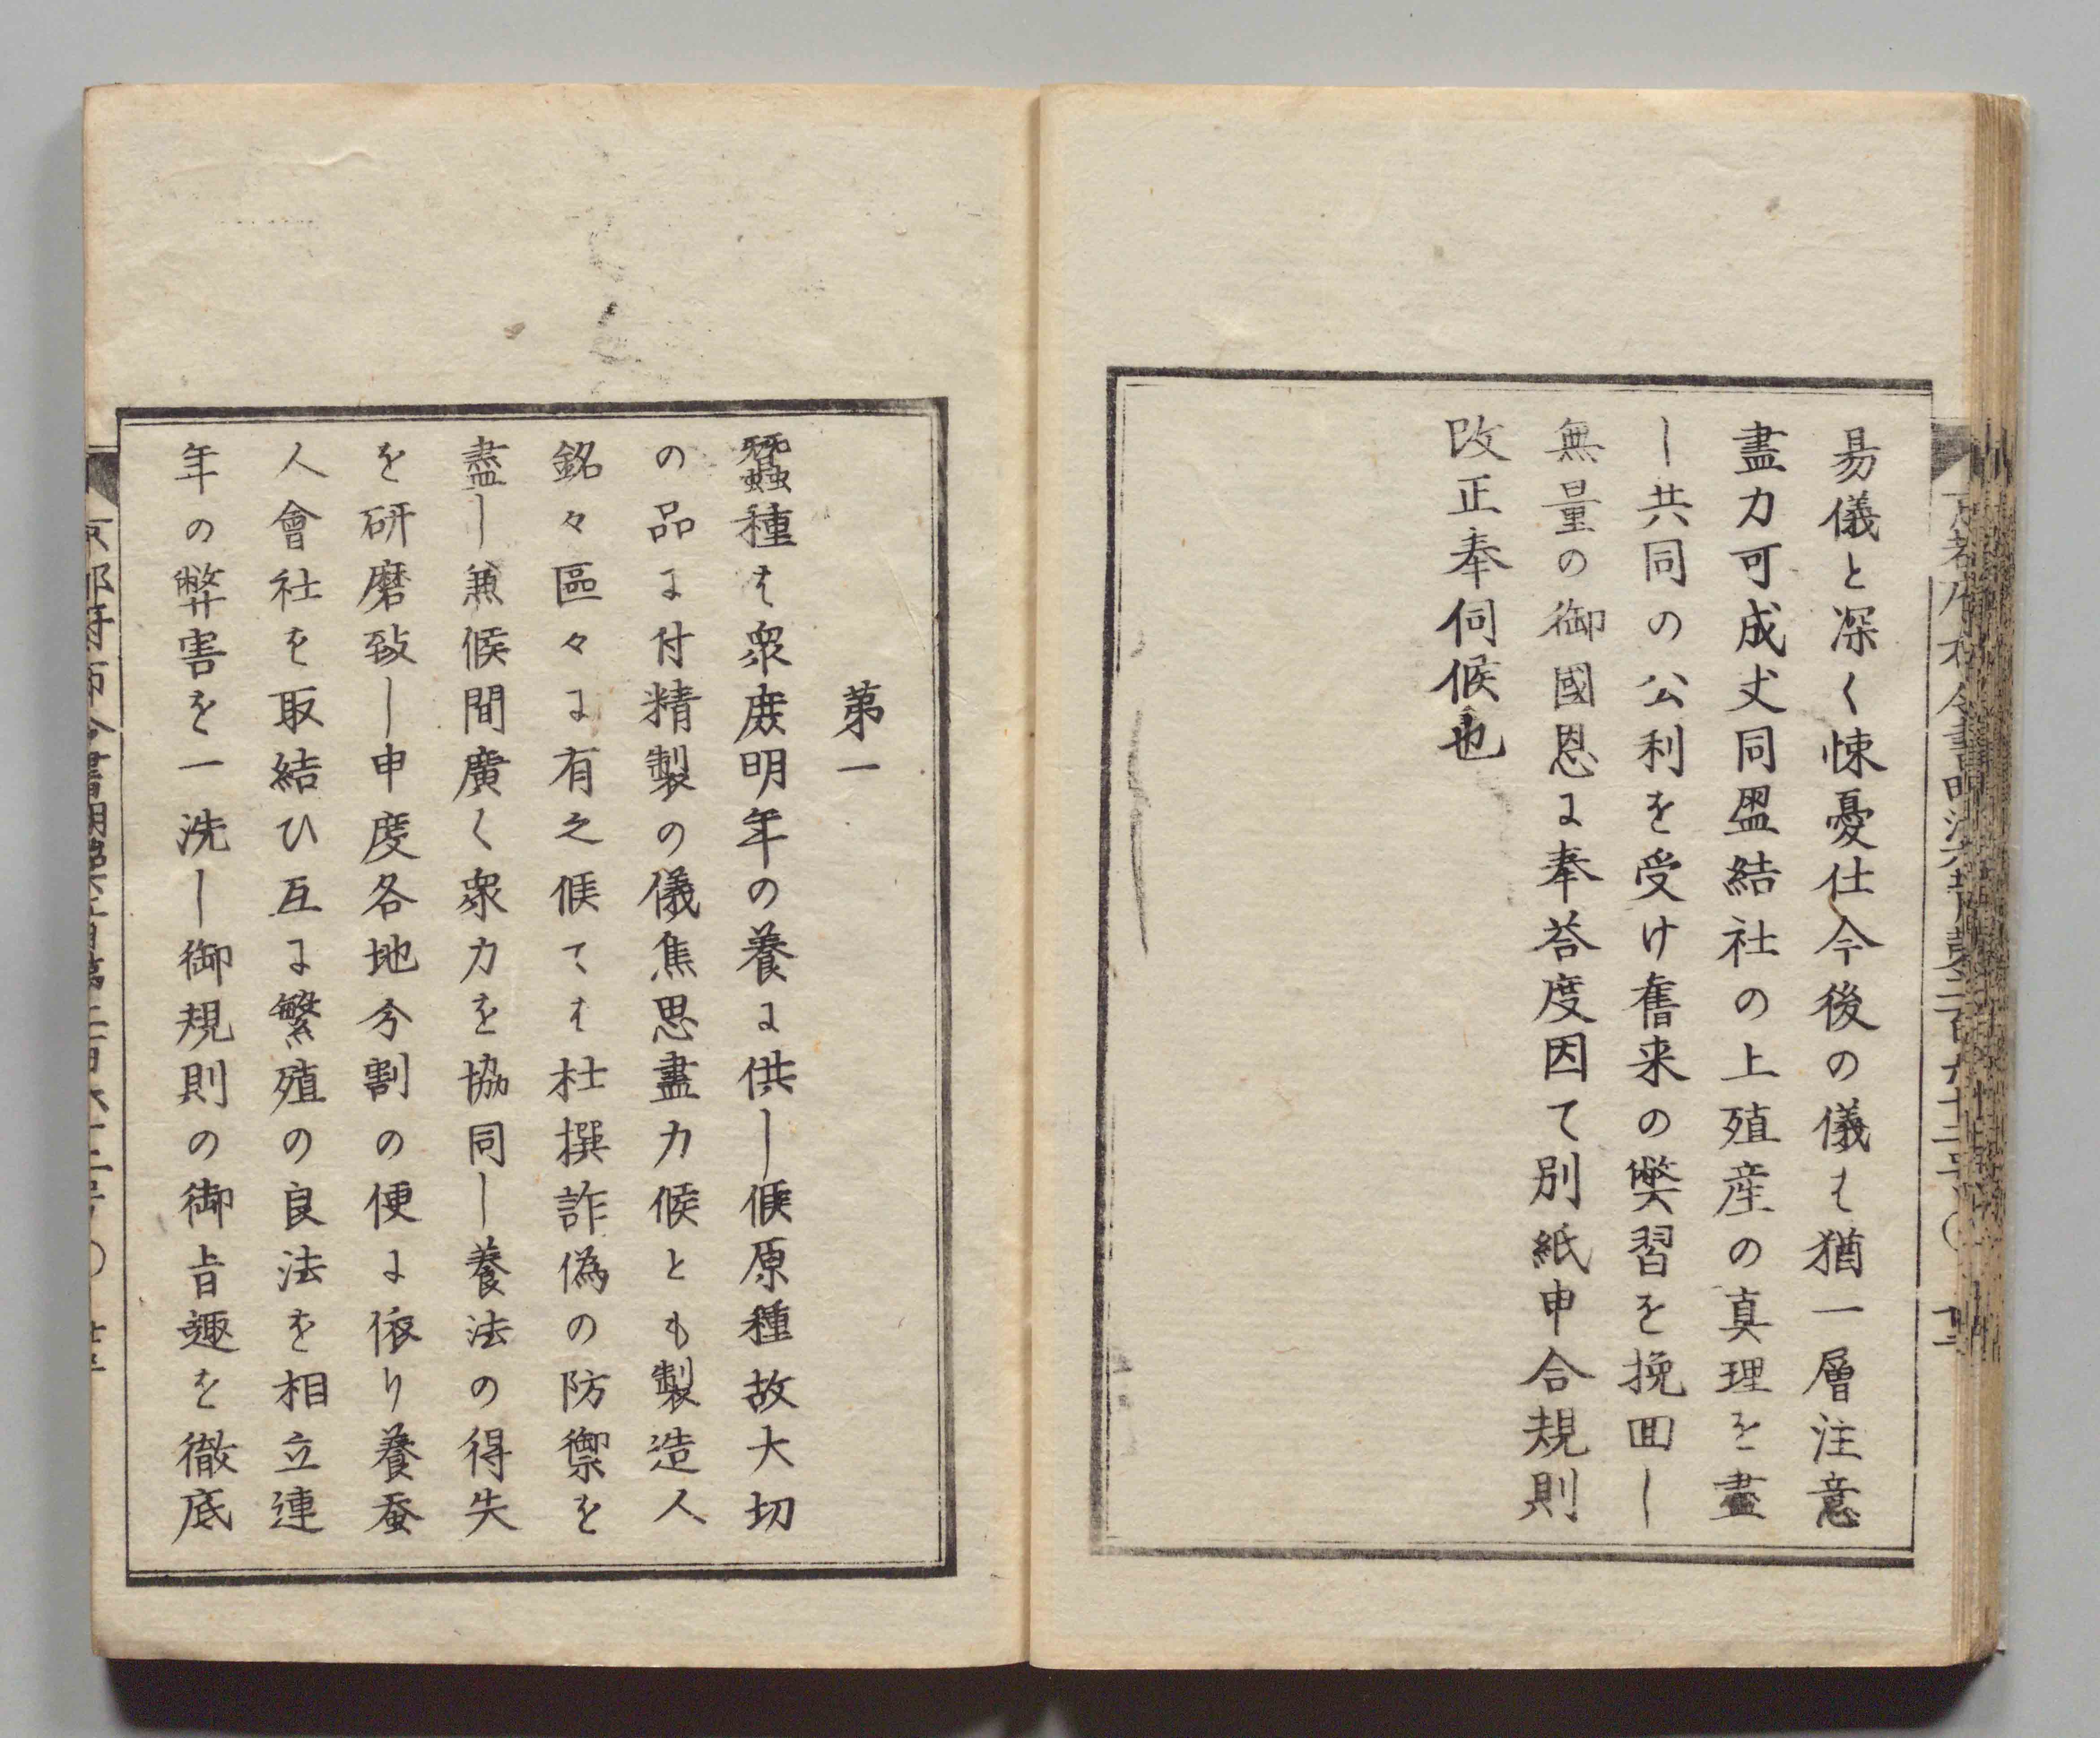 易儀と深く悚憂仕今後の儀は猶一層注意
盡力可成丈同盟結社の上殖産の真理を盡
し共同の公利を受け舊来の弊習を挽回し
無量の御國恩に奉荅度因て別紙申合規則
改正奉伺候也
第一
蠶種は衆庶明年の養に供し候原種故大切
の品に付精製の儀焦思盡力候とも製造人
銘々區々に有之候ては杜撰詐偽の防禦を
盡し兼候間廣く衆力を協同し養法の得失
を研磨致し申度各地分割の便に依り養蚕
人會社を取結ひ互に繁殖の良法を相立連
年の弊害を一洗し御規則の御旨趣を徹底